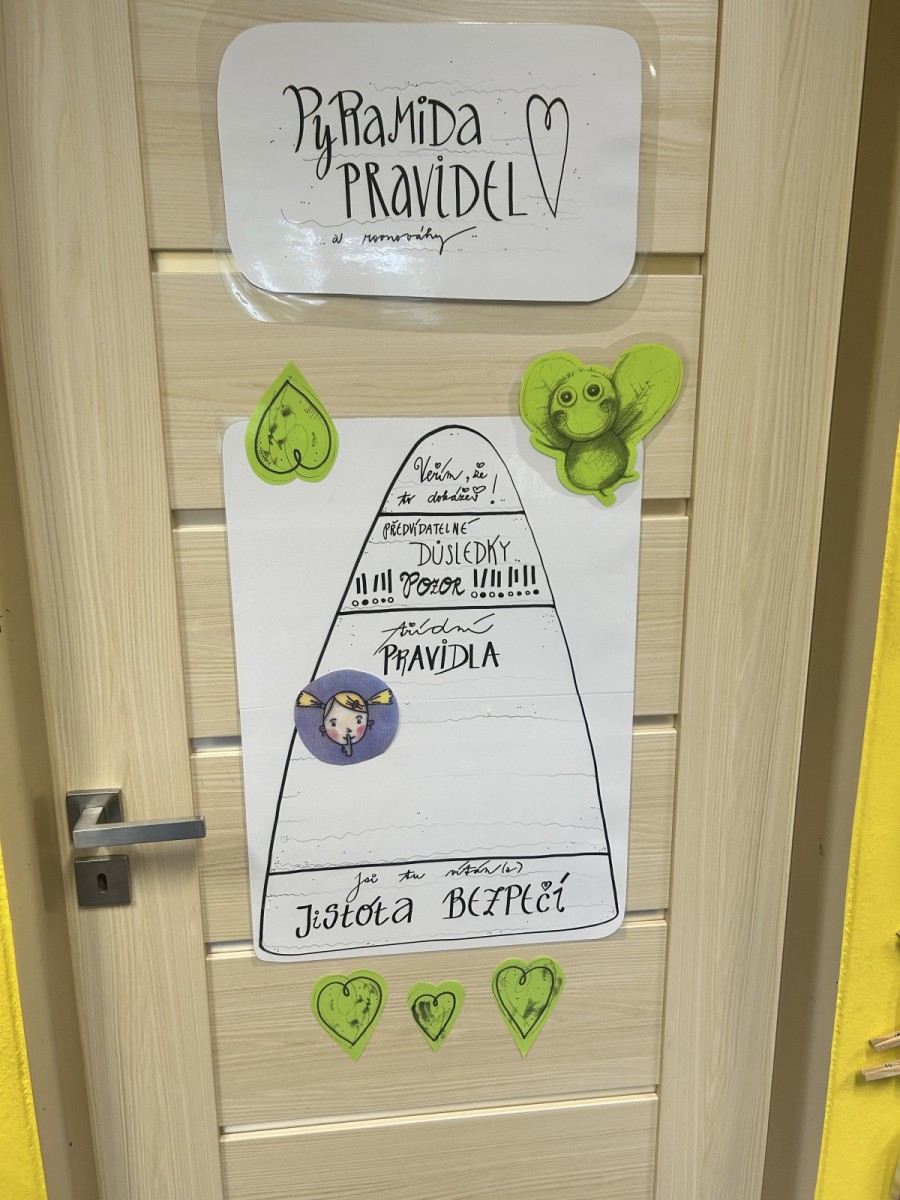 PyRaMiDa
PRAViDEL
a rovnováhy
Věřím, že
to dokážeš!
PŘEDVÍDATELNÉ
DŮSLEDKY
POZOR
třídní
PRAVIDLA
jsi tu vítán(a)
JiStOta BEZPEČÍ